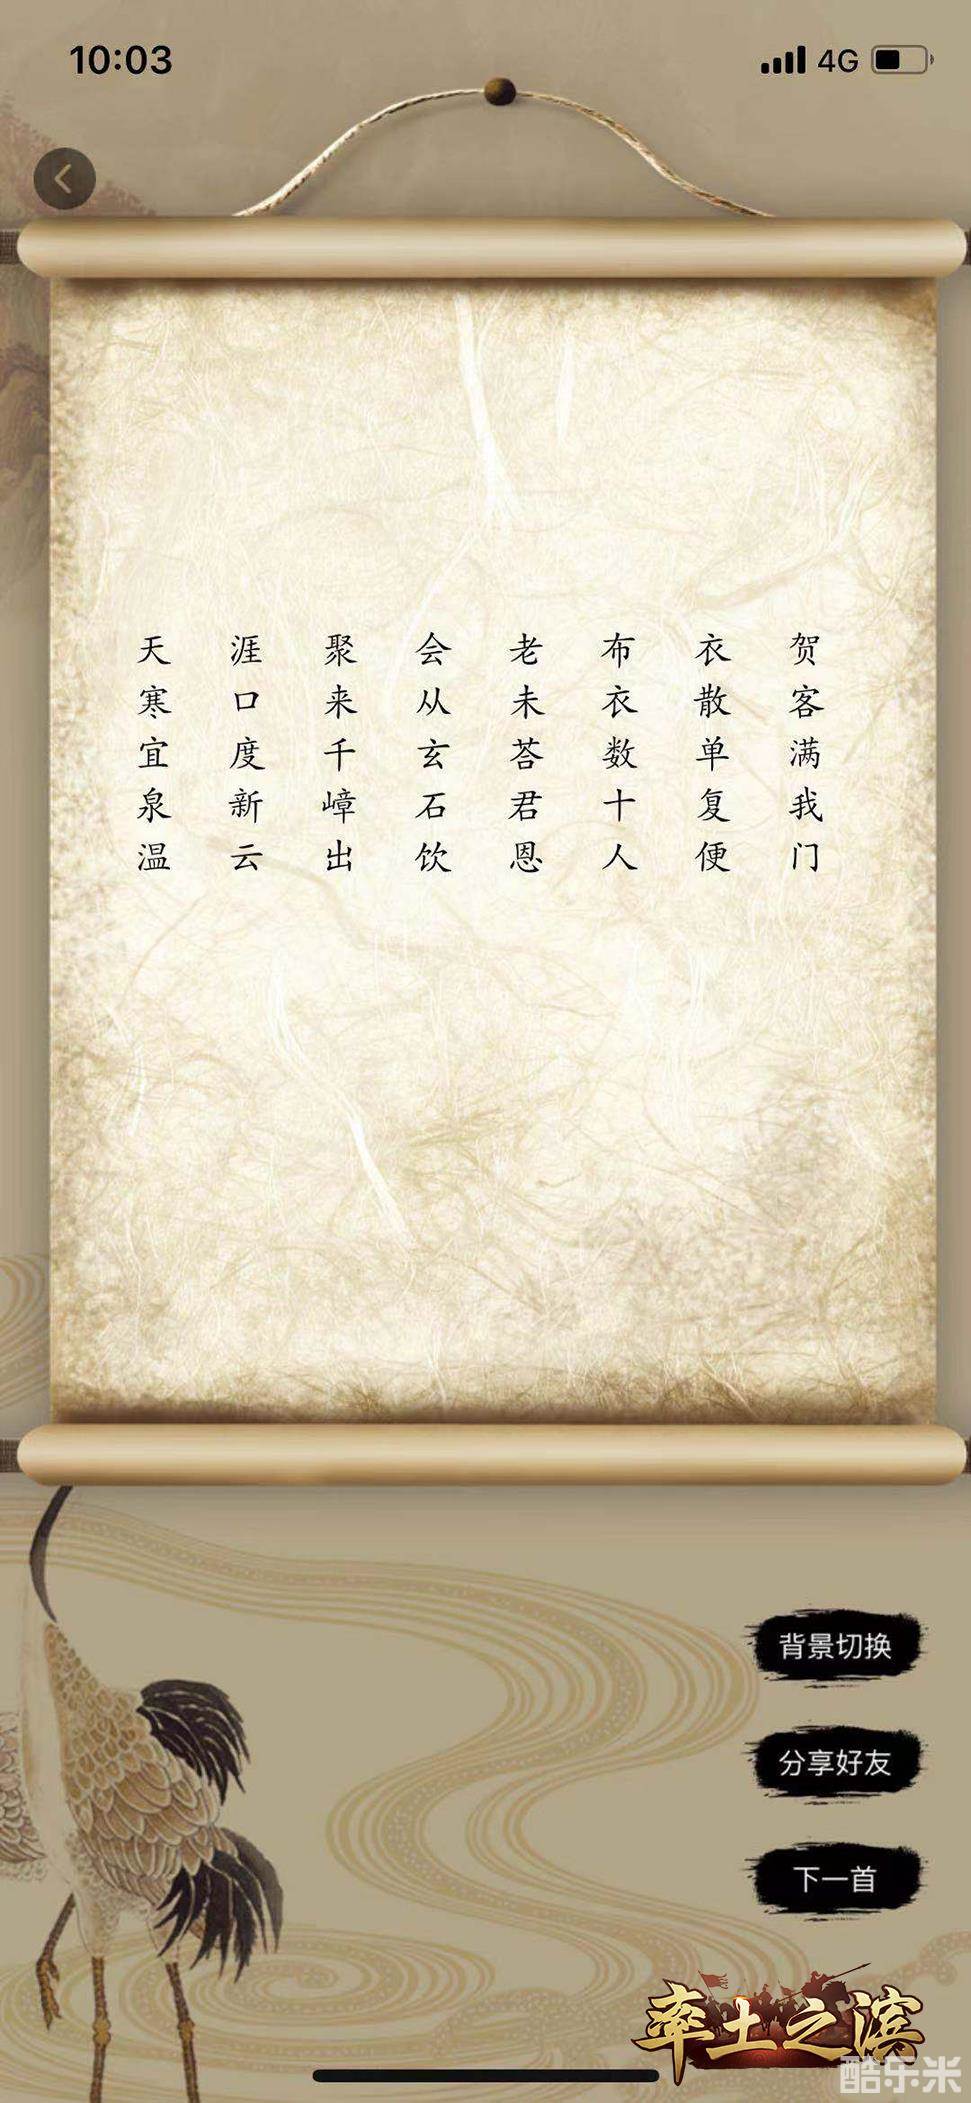 10:03
4G
天寒宜泉温
涯口度新云
聚来千嶂出
会从玄石饮
老未荅君恩
布衣数十人
衣散单复便
贺客满我门
背景切换
分享好友
下一首
率土之滨
酷乐米